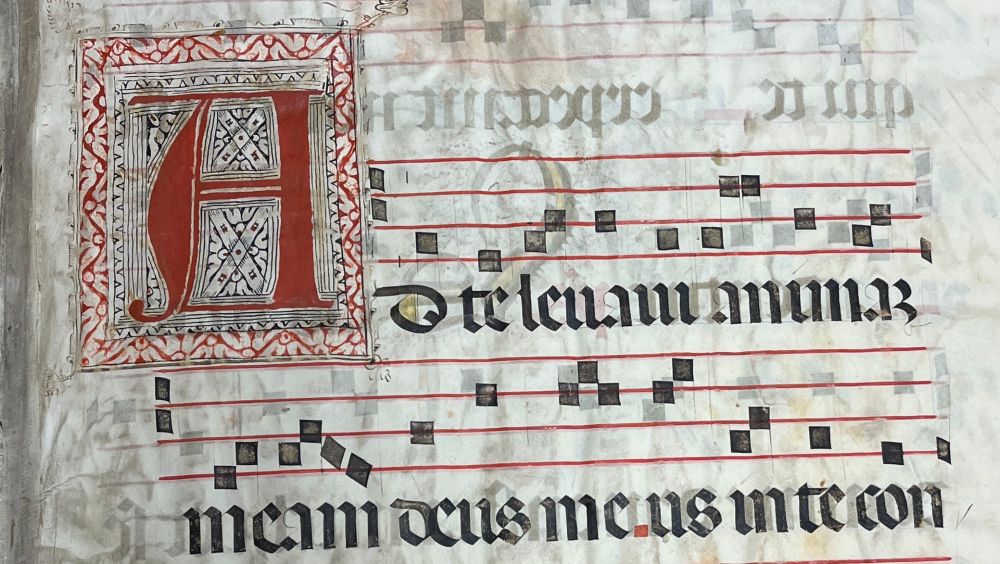 AD te leuaui animaz
meam deus me.us in te con